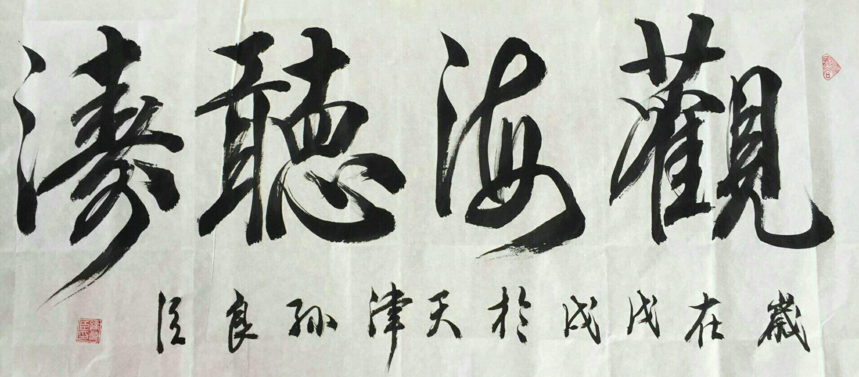 觀海聽濤
歲在戊戌於天津孫良臣